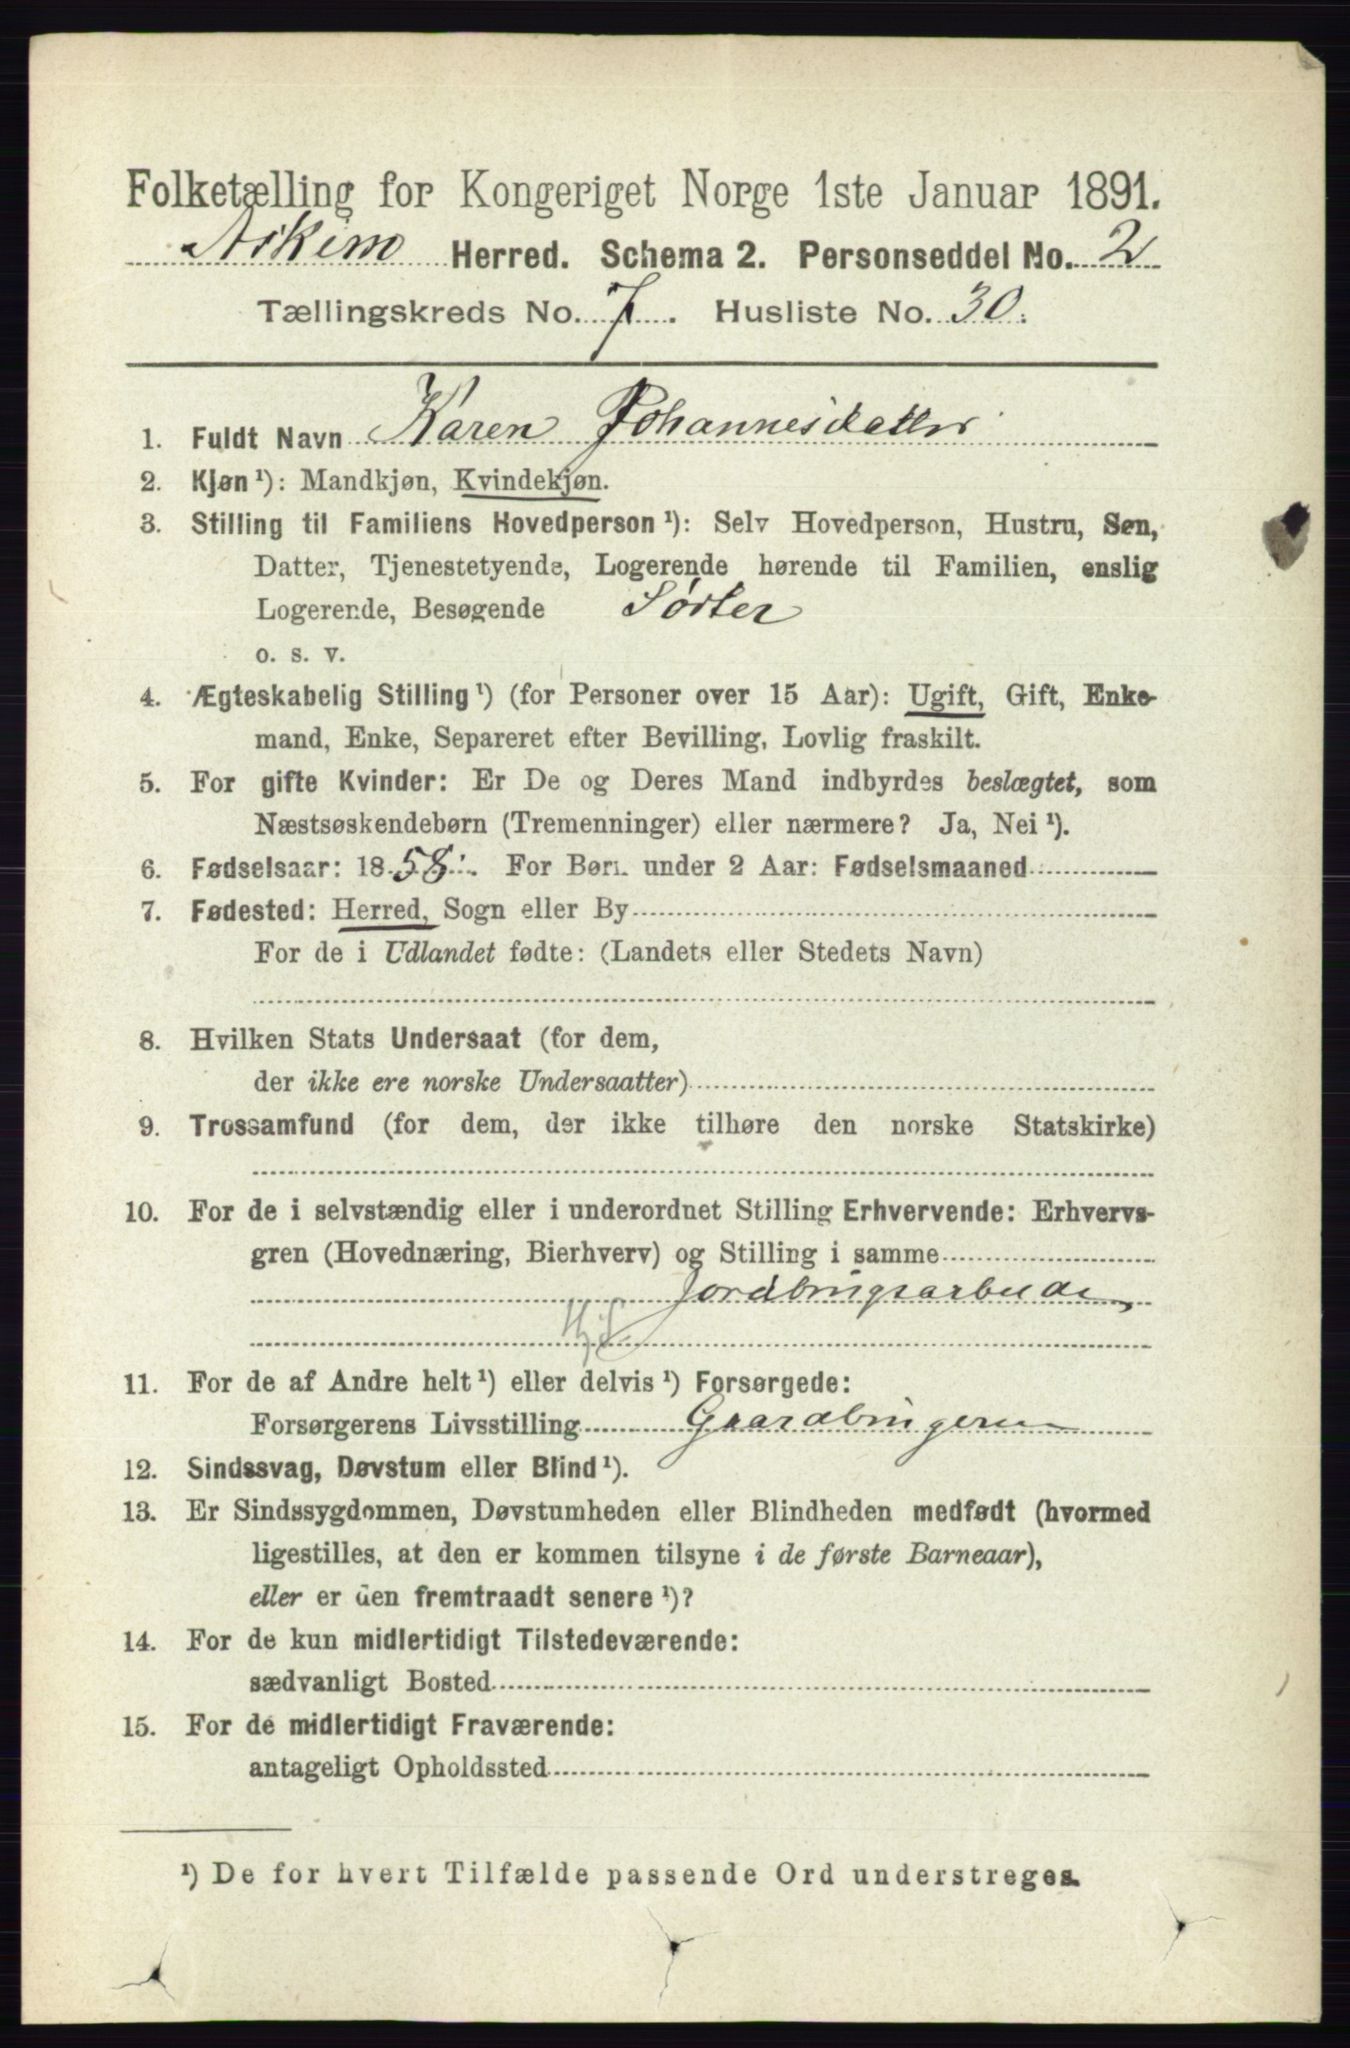 Folketælling for Kongeriget Norge 1ste Januar 1891.
Askim Herred. Schema 2. Personseddel No. 2
Tællingskreds No. 7. Husliste No. 30.
1. Fuldt Navn Karen Johannesdatter
2. Kjøn¹): Mandkjøn, Kvindekjøn.
3. Stilling til Familiens Hovedperson¹): Selv Hovedperson, Hustru, Søn,
Datter, Tjenestetyende, Logerende hørende til Familien, enslig
Logerende, Besøgende Søster
o. s. v.
4. Ægteskabelig Stilling¹) (for Personer over 15 Aar): Ugift, Gift, Enke-
mand, Enke, Separeret efter Bevilling, Lovlig fraskilt.
5. For gifte Kvinder: Er De og Deres Mand indbyrdes beslægtet, som
Næstsøskendebørn (Tremenninger) eller nærmere? Ja, Nei¹).
6. Fødselsaar: 1858. For Børn under 2 Aar: Fødselsmaaned
7. Fødested: Herred, Sogn eller By
For de i Udlandet fødte: (Landets eller Stedets Navn)
8. Hvilken Stats Undersaat (for dem,
der ikke ere norske Undersaatter)
9. Trossamfund (for dem, der ikke tilhøre den norske Statskirke)
10. For de i selvstændig eller i underordnet Stilling Erhvervende: Erhvervs-
gren (Hovednæring, Bierhverv) og Stilling i samme
Jordbrugsarbeide
11. For de af Andre helt¹) eller delvis¹) Forsørgede:
Forsørgerens Livsstilling Gaardbrugeren
12. Sindssvag, Døvstum eller Blind¹).
13. Er Sindssygdommen, Døvstumheden eller Blindheden medfødt (hvormed
ligestilles, at den er kommen tilsyne i de første Barneaar),
eller er den fremtraadt senere¹)?
14. For de kun midlertidigt Tilstedeværende:
sædvanligt Bosted
15. For de midlertidigt Fraværende:
antageligt Opholdssted
¹) De for hvert Tilfælde passende Ord understreges.